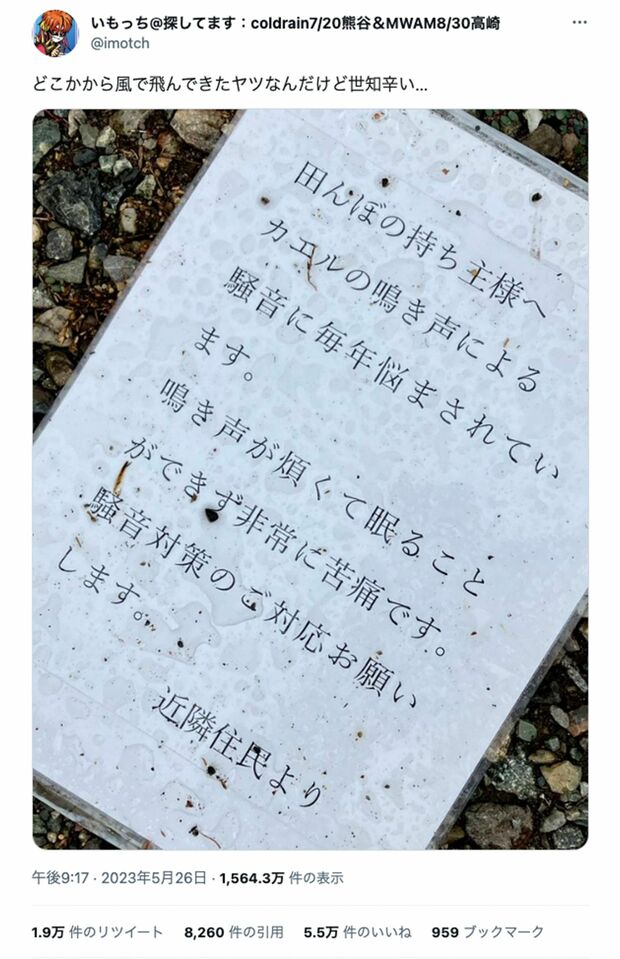 いもっち@探してます：coldrain7/20熊谷＆MWAM8/30高崎
@imotch
どこかから風で飛んできたヤツなんだけど世知辛い...
田んぼの持ち主様へ
カエルの鳴き声による
騒音に毎年悩まされてい
ます。
鳴き声が煩くて眠ること
ができず非常に苦痛です。
騒音対策のご対応お願い
します。
近隣住民より
午後9:17 · 2023年5月26日 · 1,564.3万 件の表示
1.9万 件のリツイート 8,260 件の引用 5.5万 件のいいね 959 ブックマーク